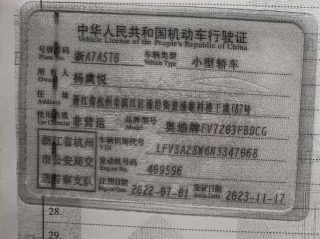 中华人民共和国机动车行驶证
Vehicle License of the People's Republic of China
号牌号码 浙A7A5T6 车辆类型 Vehicle Type 小型轿车
所有人 杨虞悦
住址
使用性质 非营运 品牌型号 奥迪牌FV7203FBDCG
浙江省杭州 车辆识别代号 VIN LFV3A28W6N3347068
市公安局交 发动机号码 Engine No. 409596
通警察支队 注册日期 2022-07-01 发证日期 Issue Date 2023-11-17
28.
29.